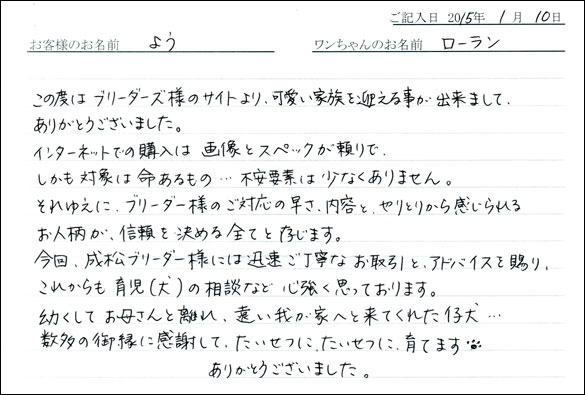 ご記入日 2015年 1月 10日
お客様のお名前 よう ワンちゃんのお名前 ローラン
この度はブリーダーズ様のサイトより、可愛い家族を迎える事が出来まして、
ありがとうございました。
インターネットでの購入は 画像とスペックが頼りで、
しかも対象は命あるもの…不安要素は少なくありません。
それゆえに、ブリーダー様のご対応の早さ、内容と、やりとりから感じられる
お人柄が、信頼を決める全てと存じます。
今回、成松ブリーダー様には迅速ご丁寧なお取引と、アドバイスを賜り、
これからも育児(犬)の相談など心強く思っております。
幼くしてお母さんと離れ、遠い我が家へと来てくれた仔犬…
数多の御縁に感謝して、たいせつに、たいせつに、育てます
ありがとうございました。